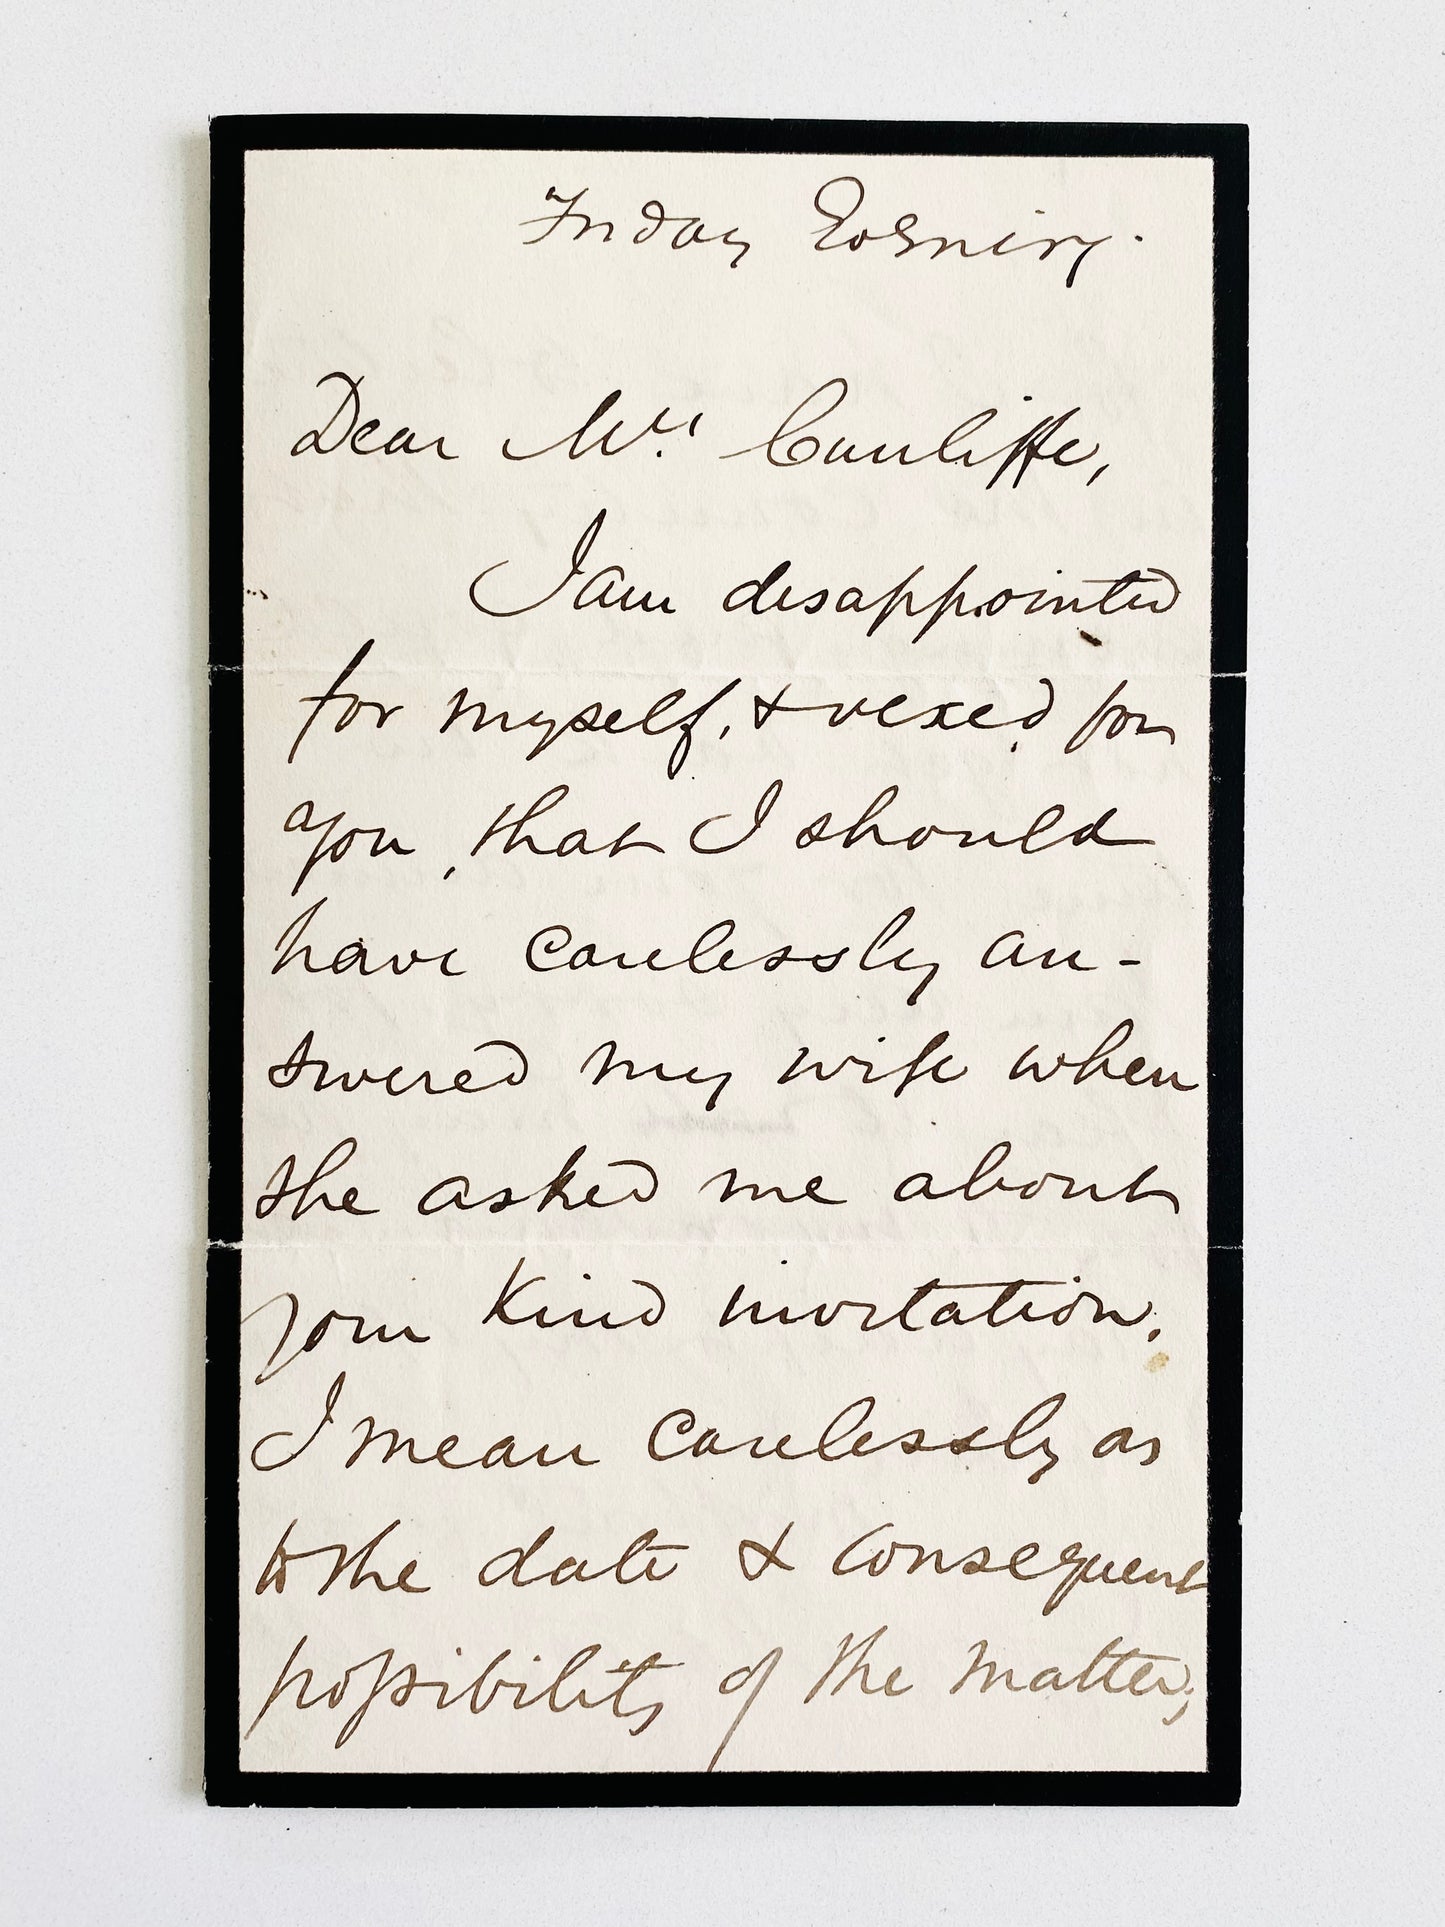 Friday Evening.
Dear Mrs. Cunliffe,
I am disappointed
for myself, & vexed for
you, that I should
have carelessly an-
swered my wife when
she asked me about
your kind invitation.
I mean carelessly as
to the date & consequent
possibility of the matter,